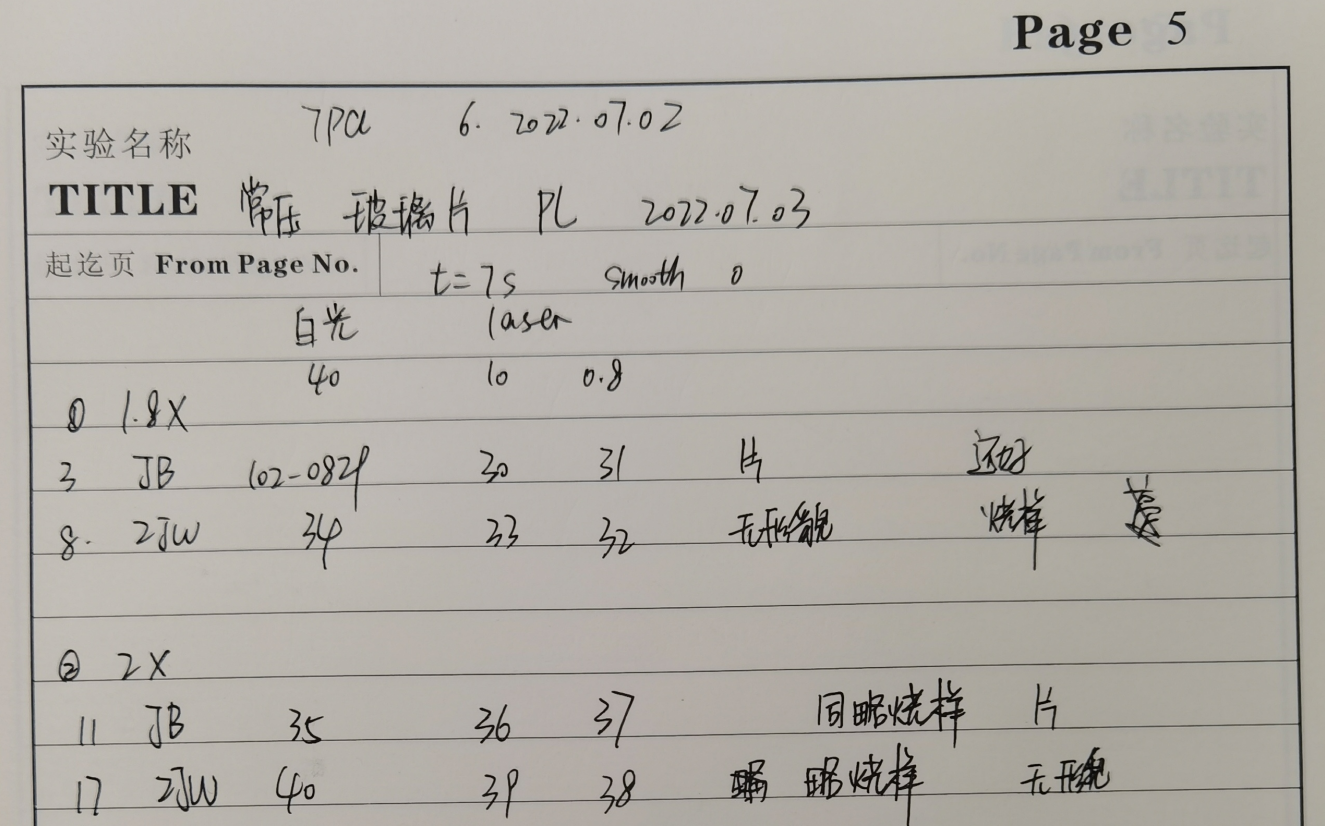 Page 5
实验名称 7Pa 6. 2022.07.02
TITLE 常压 玻璃片 PL 2022.07.03
起迄页 From Page No. t=7s smooth 0
白光 laser
40 10 0.8
① 1.8X
3 JB 30 31 片 还好
8. 2JW 34 33 32 无形貌 烧样
② 2X
11 JB 35 36 37 同 略烧样 片
17 2JW 40 39 38 略烧样 无形貌